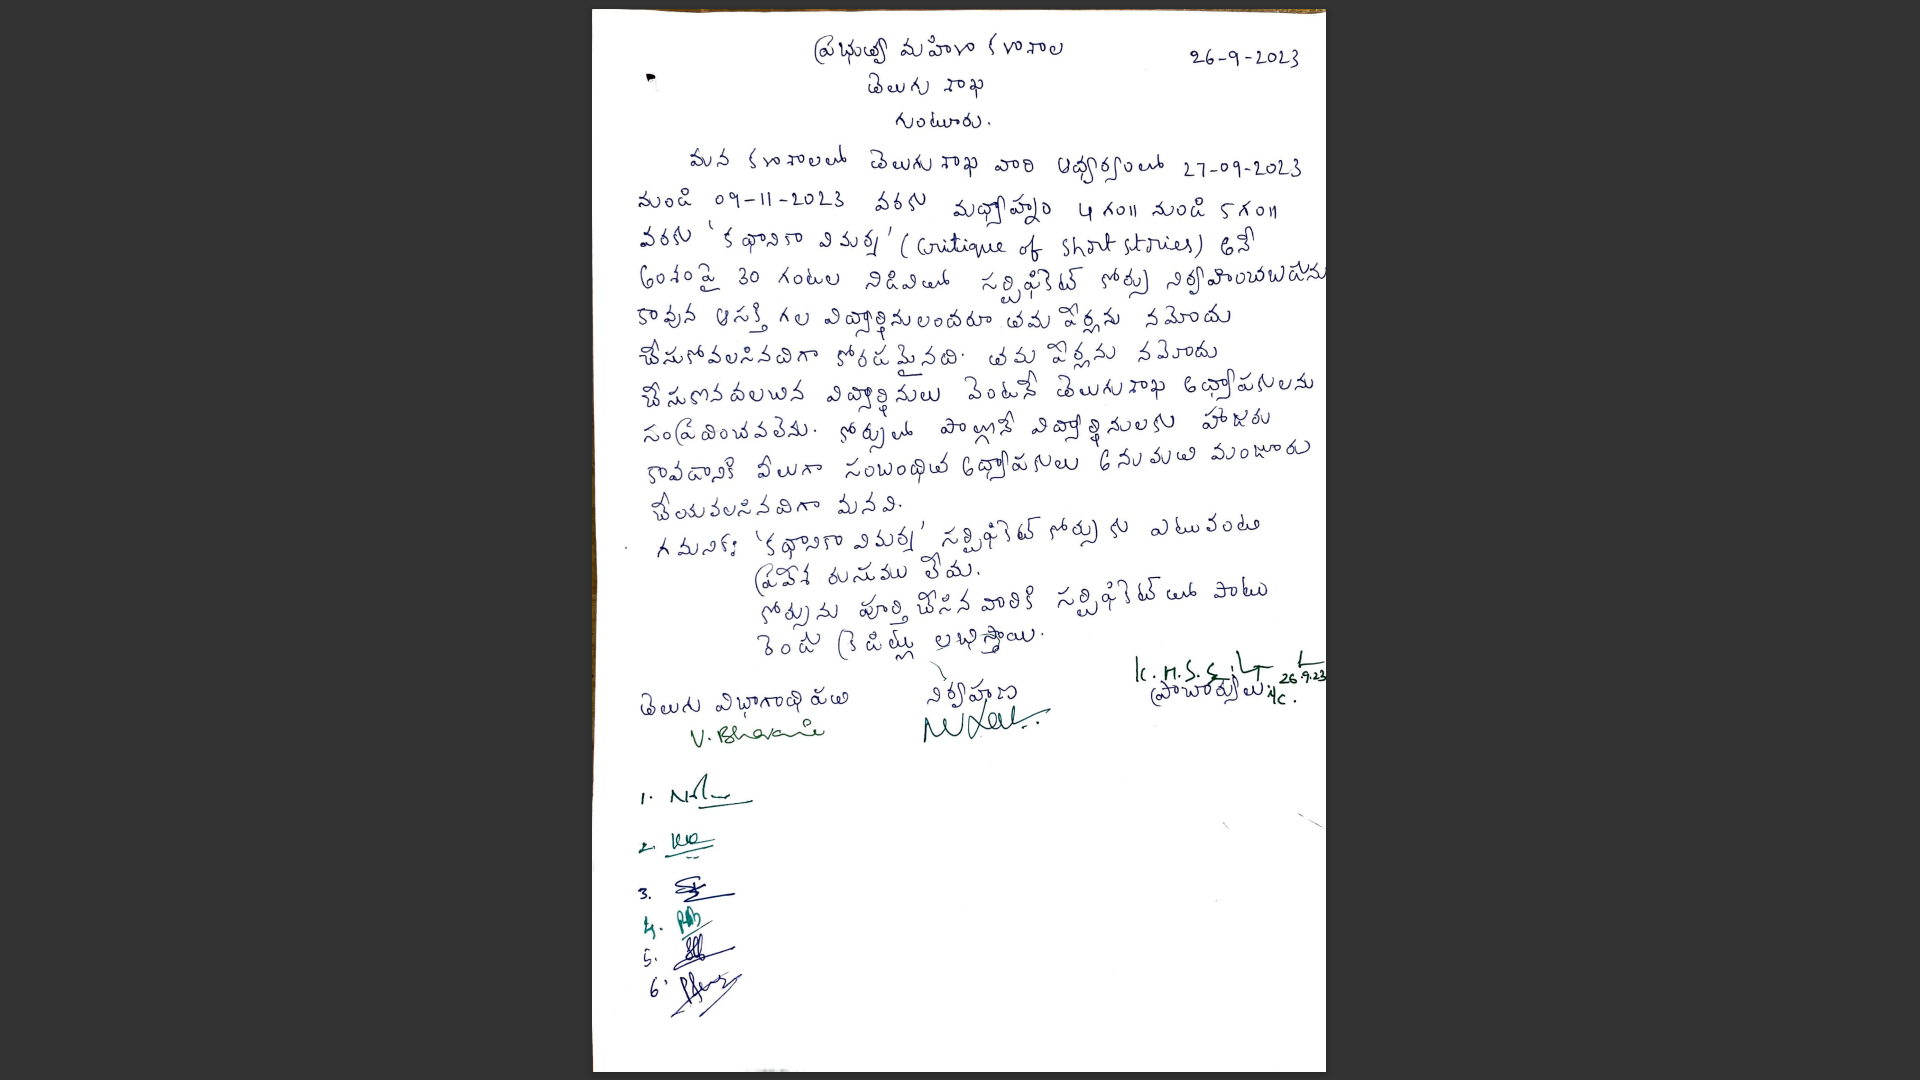 ప్రభుత్వ మహిళా కళాశాల
26-9-2023
తెలుగు శాఖ
గుంటూరు.
మన కళాశాలలో తెలుగు శాఖ వారి ఆధ్వర్యంలో 27-09-2023
నుండి 09-11-2023 వరకు మధ్యాహ్నం 4 గం॥ నుండి 5 గం॥
వరకు 'కథానికా విమర్శ' (Critique of short stories) అనే
అంశంపై 30 గంటల నిడివితో సర్టిఫికెట్ కోర్సు నిర్వహించబడును
కావున ఆసక్తి గల విద్యార్థినులందరూ తమ పేర్లను నమోదు
చేసుకోవలసినదిగా కోరడమైనది. తమ పేర్లను నమోదు
చేసుకొనదలచిన విద్యార్థినులు వెంటనే తెలుగు శాఖ అధ్యాపకులను
సంప్రదించవలెను. కోర్సులో పాల్గొనే విద్యార్థినులకు హాజరు
కావడానికి వీలుగా సంబంధిత అధ్యాపకులు అనుమతి మంజూరు
చేయవలసినదిగా మనవి.
గమనిక: 'కథానికా విమర్శ' సర్టిఫికెట్ కోర్సు కు ఎటువంటి
ప్రవేశ రుసుము లేదు.
కోర్సును పూర్తి చేసిన వారికి సర్టిఫికెట్ తో పాటు
రెండు క్రెడిట్లు లభిస్తాయి.
తెలుగు విభాగాధిపతి
నిర్వహణ
26.9.23
ప్రాచార్యులు
V. Bhavani
1.
2.
3.
4.
5.
6.